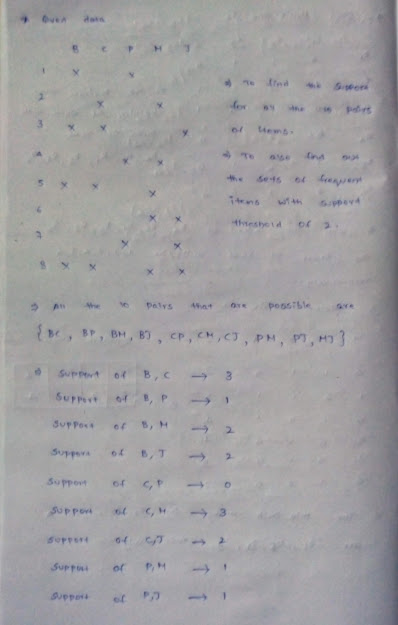 Given data
B C P M J
1 x x
2 x x
3 x x x
4 x x
5 x x x
6 x x
7 x x
8 x x x x
To find the support
for all the 10 pairs
of items.
To also find out
the sets of frequent
items with support
threshold of 2.
All the 10 pairs that are possible are
{ BC, BP, BM, BJ, CP, CM, CJ, PM, PJ, MJ }
Support of B, C → 3
Support of B, P → 1
Support of B, M → 2
Support of B, J → 2
Support of C, P → 0
Support of C, M → 3
Support of C, J → 2
Support of P, M → 1
Support of P, J → 1